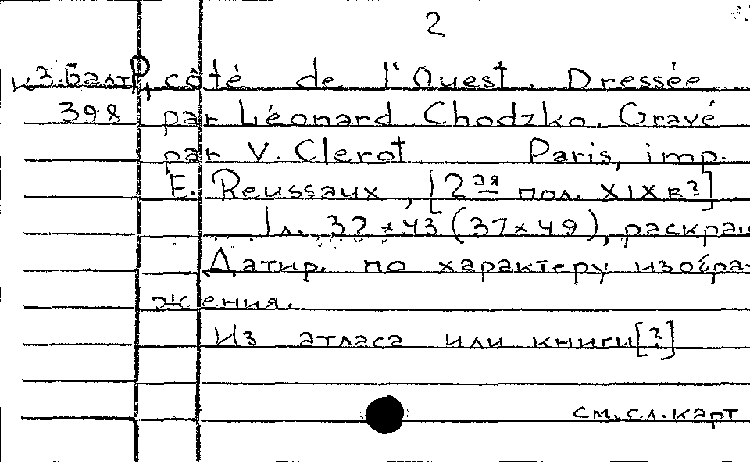 2
к3.Балт, côté de l'Ouest. Dressée
398 par Léonard Chodzko. Gravé
par V. Clerot Paris, imp.
E. Reussaux, [2ая пол. XIX в?]
1 л. 32×43 (37×49), раскраш
Датир. по характеру изобра-
жения.
Из атласа или книги[?]
см. сл. карт